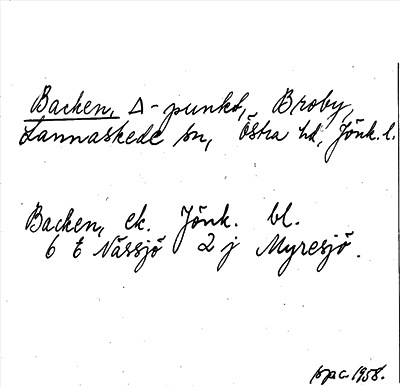 Backen, Δ-punkt, Broby,
Lannaskede sn, Östra hd, Jönk. l.
Backen, ek. Jönk. bl.
6 E Nässjö 2 j Myresjö.
1958.